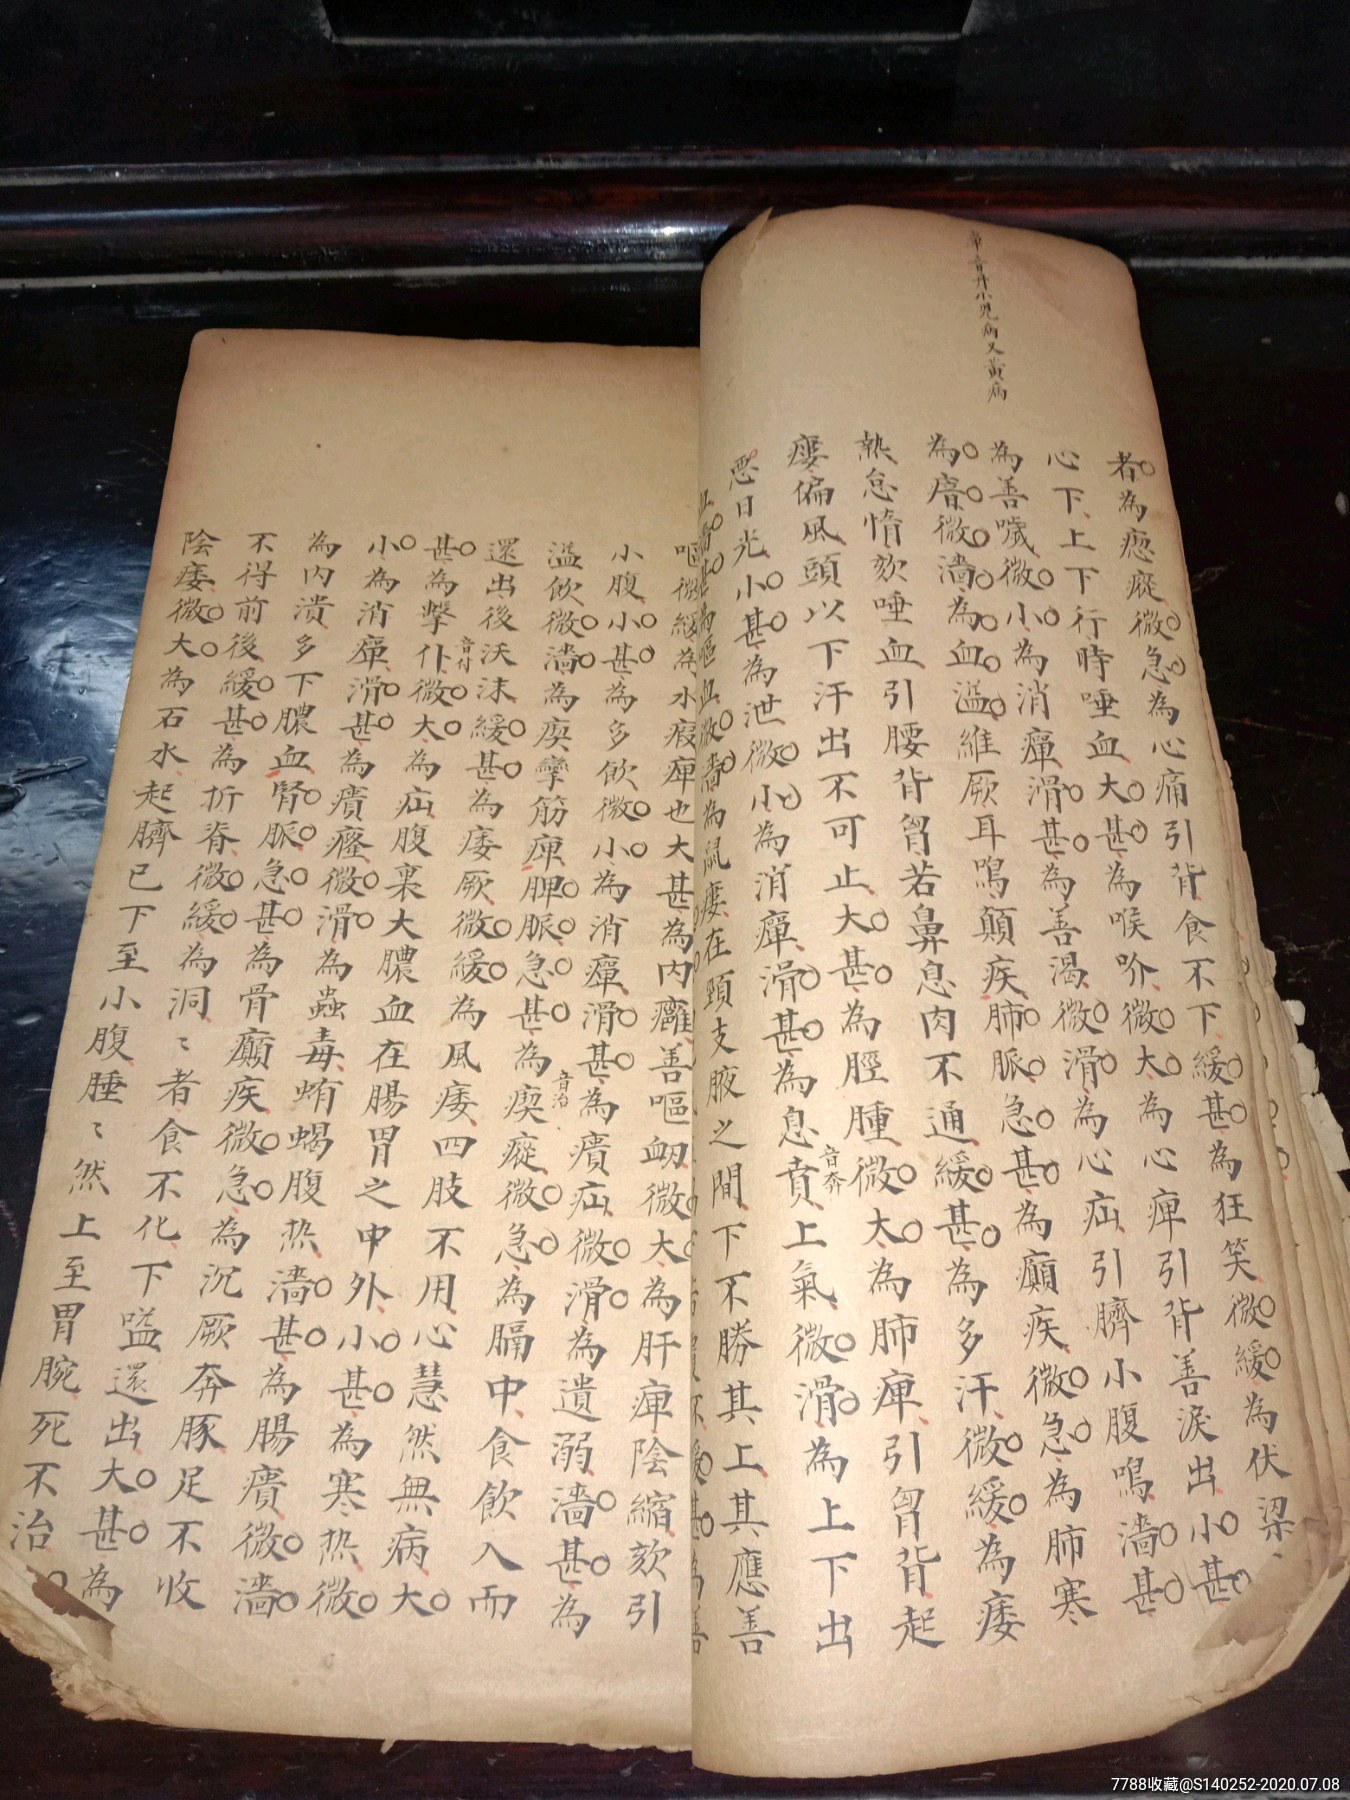 音丹小兒病又黃病
者為瘛瘲微急為心痛引背食不下緩甚為狂笑微緩為伏梁
心下上下行時唾血大甚為喉吤微大為心痺引背善淚出小甚
為善噦微小為消癉滑甚為善渴微滑為心疝引臍小腹鳴濇甚
為瘖微濇為血溢維厥耳鳴顛疾肺脈急甚為癲疾微急為肺寒
熱怠惰欬唾血引腰背胷若鼻息肉不通緩甚為多汗微緩為痿
瘻偏風頭以下汗出不可止大甚為脛腫微大為肺痺引胷背起
惡日光小甚為泄微小為消癉滑甚為息賁音奔上氣微滑為上下出
血濇甚為嘔血微濇為鼠瘻在頸支腋之間下不勝其上其應善
緩甚為善
嘔微緩為水瘕痺也大甚為內癰善嘔衂微大為肝痺陰縮欬引
小腹小甚為多飲微小為消癉滑甚為㿉疝微滑為遺溺濇甚為
溢飲微濇為瘈攣筋痺脾脈急甚為瘈瘲微急為膈中食飲入而
還出後沃沫緩甚為痿厥微緩為風痿四肢不用心慧然無病大
甚為擊仆音付微大為疝腹裹大膿血在腸胃之中外小甚為寒热微
小為消癉滑甚為㿉癃微滑為蟲毒蛕蝎腹热濇甚為腸㿉微濇
為內潰多下膿血腎脈急甚為骨癲疾微急為沉厥奔豚足不收
不得前後緩甚為折脊微緩為洞〻者食不化下嗌還出大甚為
陰痿微大為石水起臍已下至小腹腄〻然上至胃脘死不治
7788收藏@S140252-2020.07.08